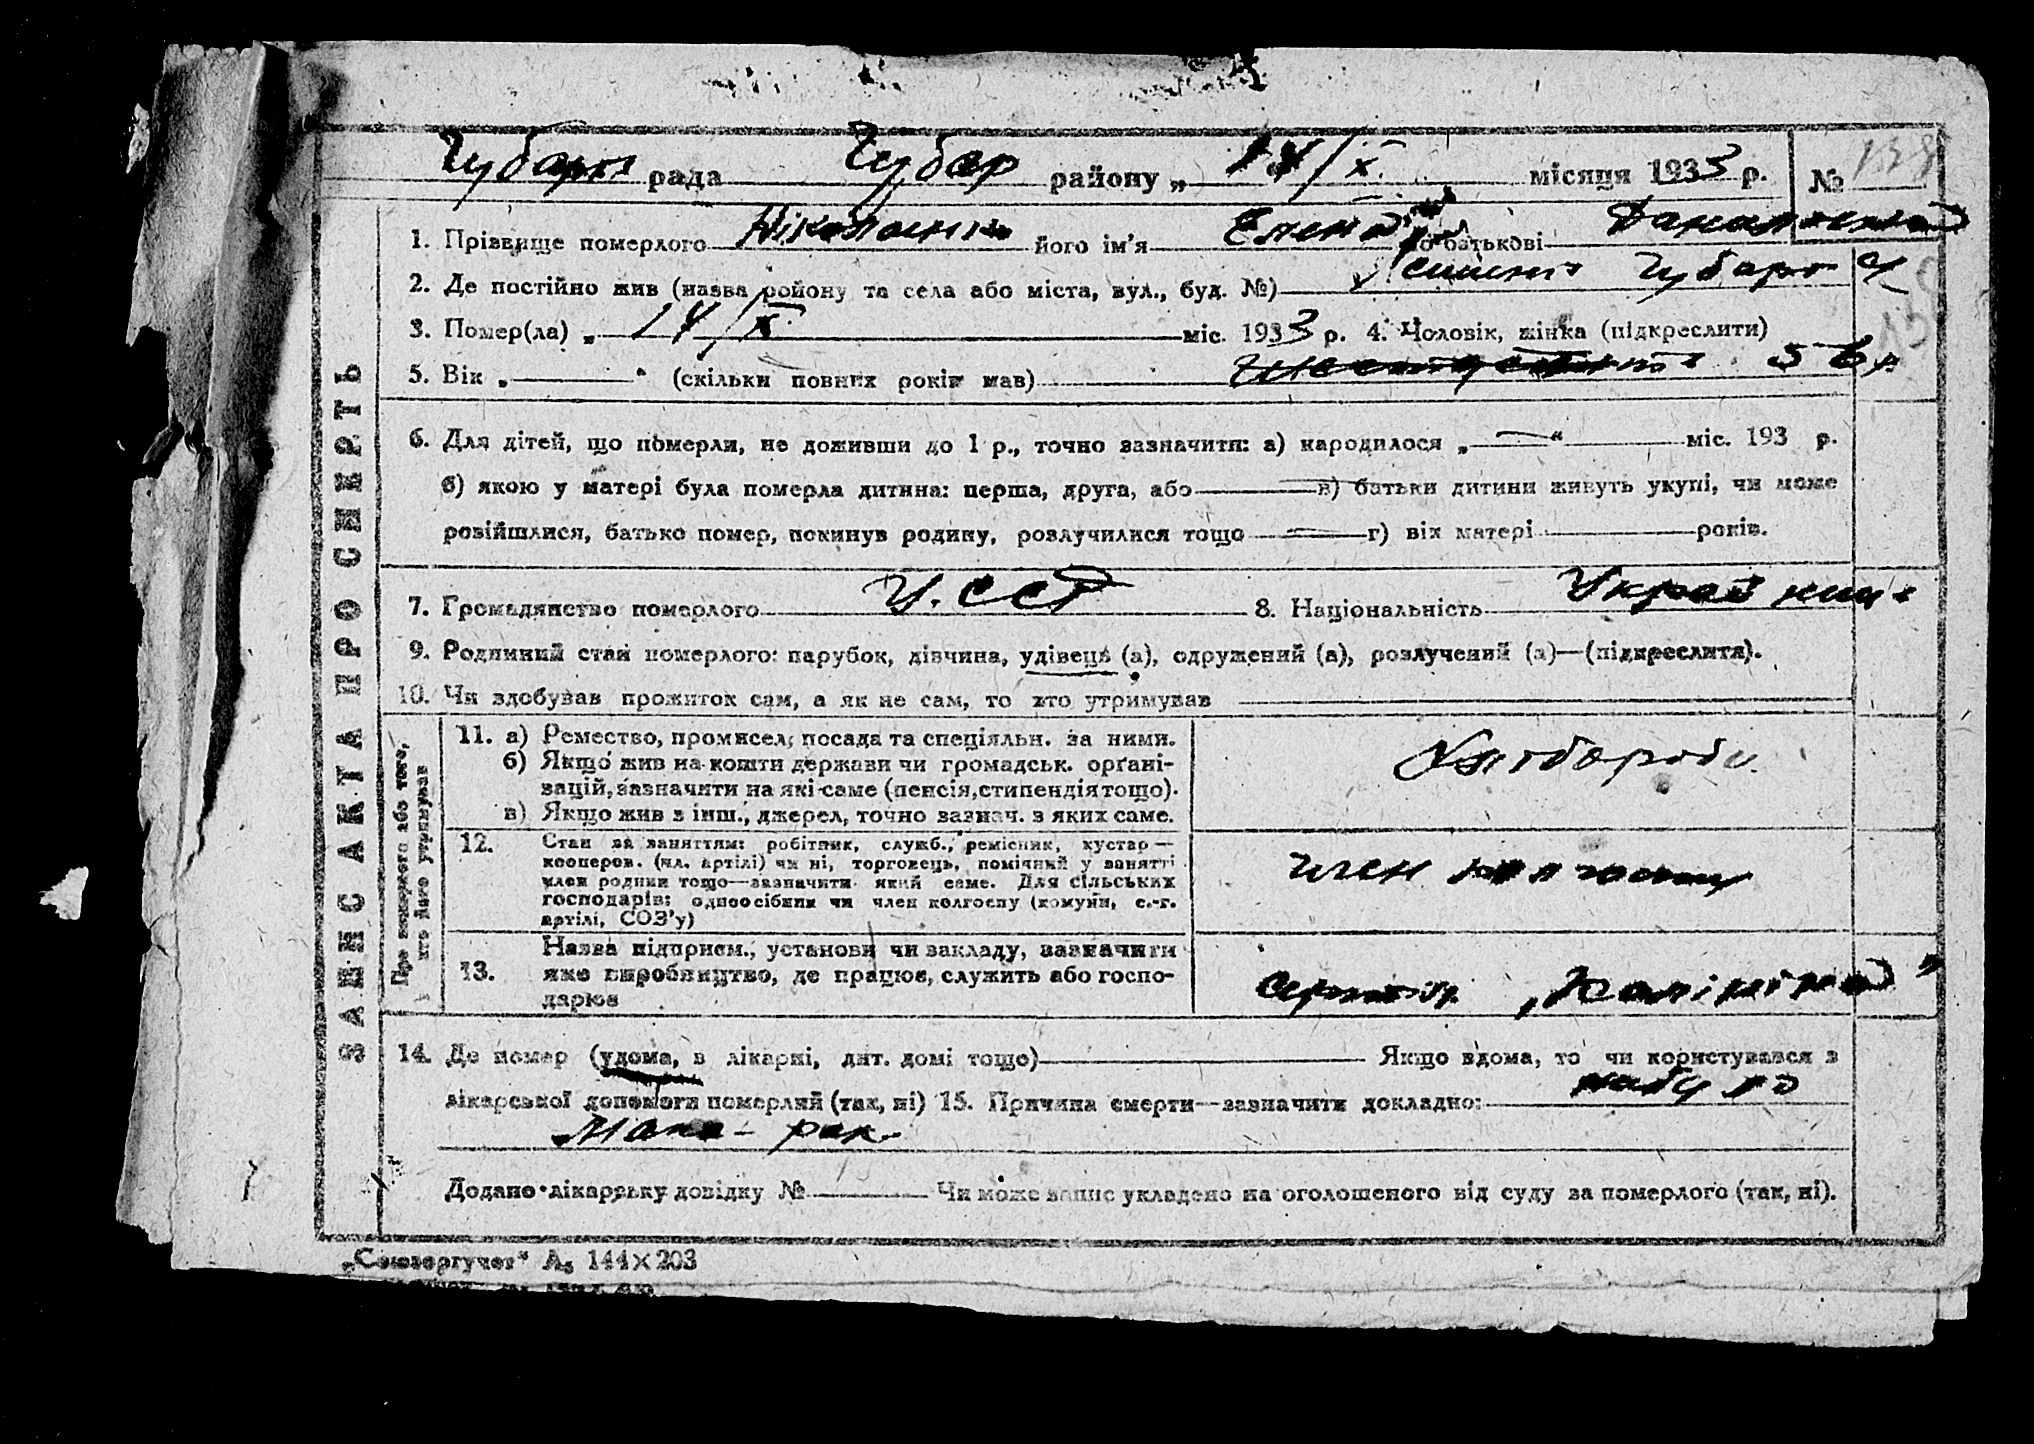 Чубарів рада Чубар району „ 14/X місяця 1933 р. № 138
1. Прізвище померлого його ім'я Елена по батькові
2. Де постійно жив (назва району та села або міста, вул., буд. №)
3. Помер(ла) „ 14/X міс. 1933 р. 4. Чоловік, жінка (підкреслити)
5. Вік „ “ (скільки повних років мав)
6. Для дітей, що померли, не доживши до 1 р., точно зазначити: а) народилося „ “ міс. 193 р.
б) якою у матері була померла дитина: перша, друга, або в) батьки дитини живуть укупі, чи може
розійшлися, батько помер, покинув родину, розлучилися тощо г) вік матері років.
7. Громадянство померлого У.ССР 8. Національність
9. Родинний стан померлого: парубок, дівчина, удівець (а), одружений (а), розлучений (а)—(підкреслити).
10. Чи здобував прожиток сам, а як не сам, то хто утримував
ЗАПИС АКТА ПРО СМЕРТЬ
Про померлого або того,
хто його утримував
11. а) Ремество, промисел, посада та спеціяльн. за ними.
б) Якщо жив на кошти держави чи громадськ. орґані-
зацій, зазначити на які саме (пенсія, стипендія тощо).
в) Якщо жив з інш., джерел, точно зазнач. з яких саме.
Хліборобс.
12. Стан за заняттям: робітник, служб., ремісник, кустар—
кооперов. (чл. артілі) чи ні, торговець, помічний у занятті
член родини тощо—зазначити який саме. Для сільських
господарів: одноосібник чи член колгоспу (комуни, с.-г.
артілі, СОЗ'у)
член колгоспу
13. Назва підприєм., установи чи закладу, зазначити
яке виробництво, де працює, служить або госпо-
дарює
14. Де помер (удома, в лікарні, дит. домі тощо) Якщо вдома, то чи користувався з
лікарської допомоги померлий (так, ні) 15. Причина смерти—зазначити докладно:
рак
Додано лікарську довідку № Чи може запис укладено на оголошеного від суду за померлого (так, ні).
„Союзоргучет“ А₅ 144×203